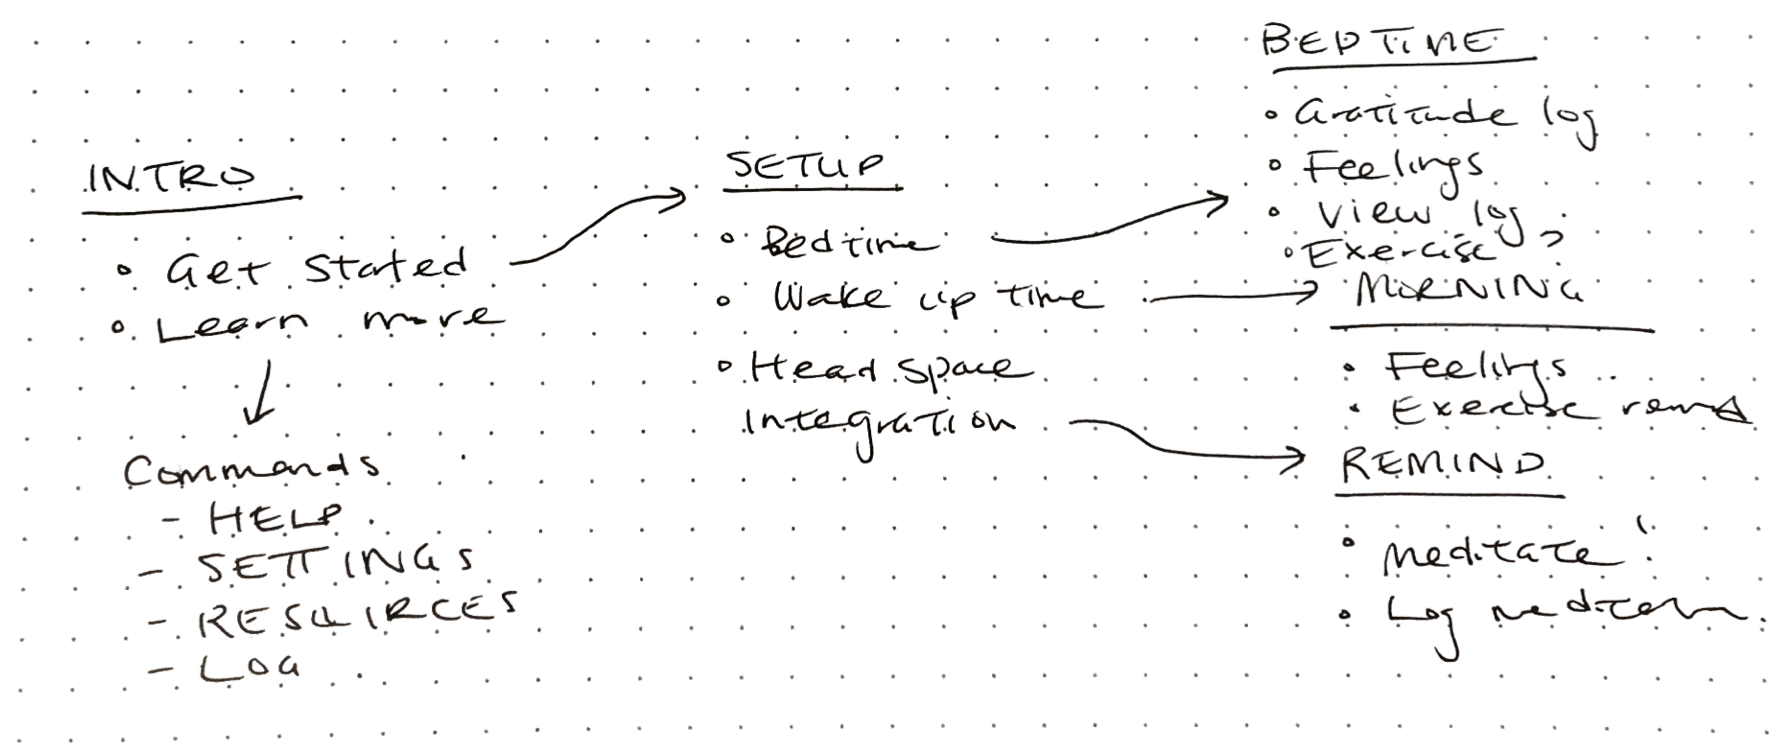 INTRO
• Get Stated
• Learn more
Commands
- HELP
- SETTINGS
- RESOURCES
- LOG
SETUP
• Bedtime
• Wake up time
• Head space
Integration
BEDTIME
• Gratitude log
• Feelings
• View log
• Exercise?
MORNING
• Feelings
• Exercise
REMIND
• Meditate!
• Log